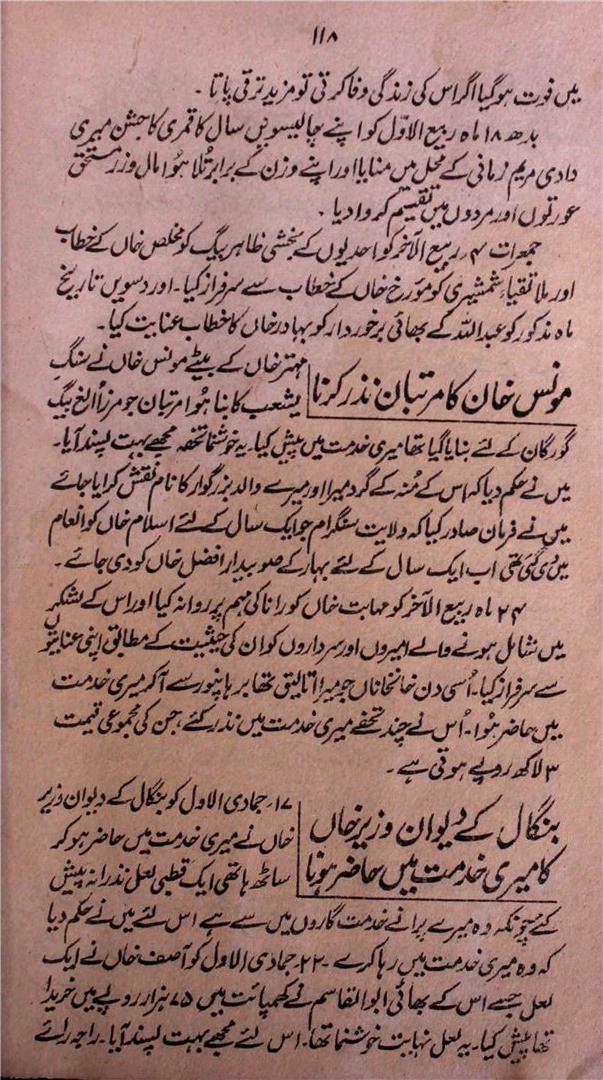 ۱۱۸
میں فوت ہو گیا اگر اس کی زندگی وفا کرتی تو مزید ترقی پاتا ۔
بدھ ۱۸ ماہ ربیع الاوّل کو اپنے چالیسویں سال کا قمری کا جشن میری
دادی مریم زمانی کے محل میں منایا اور اپنے وزن کے برابر تُلا ہُوا مال و زر مستحق
عورتوں اور مردوں میں تقسیم کروا دیا ۔
جمعرات ۴؍ ربیع الآخر کو احدیوں کے بخشی ظاہر بیگ کو مخلص خاں کے خطاب
اور ملا نقیاء شمشیری کو مؤرخ خاں کے خطاب سے سرفراز کیا ۔ اور دسویں تاریخ
ماہ مذکور کو عبداللہ کے بھائی برخوردار کو بہادر خاں کا خطاب عنایت کیا ۔
مونس خان کا مرتبان نذر کرنا
مہتر خاں کے بیٹے مونس خاں نے سنگِ
یشعب کا بنا ہُوا مرتبان جو مرزا الغ بیگ
گورگان کے لئے بنایا گیا تھا میری خدمت میں پیش کیا ۔ یہ خوشنما تحفہ مجھے بہت پسند آیا ۔
میں نے حکم دیا کہ اس کے مُنہ کے گرد میرا اور میرے والد بزرگوار کا نام نقش کرایا جائے
میں نے فرمان صادر کیا کہ ولایت سنگرام جو ایک سال کے لئے اسلام خاں کو انعام
میں دی گئی تھی اب ایک سال کے لئے بہار کے صوبیدار افضل خاں کو دی جائے ۔
۲۴ ماہ ربیع الآخر کو مہابت خاں کو رانا کی مہم پر روانہ کیا اور اس کے لشکر
میں شامل ہونے والے امیروں اور سرداروں کو ان کی حیثیت کے مطابق اپنی عنایتوں
سے سرفراز کیا ۔ اُسی دن خانخاناں جو میرا اتالیق تھا برہانپور سے آ کر میری خدمت
میں حاضر ہُوا ۔ اُس نے چند تحفے میری خدمت میں نذر کئے جن کی مجموعی قیمت
۳ لاکھ روپے ہوتی ہے ۔
بنگال کے دیوان وزیر خاں
کا میری خدمت میں حاضر ہونا
۱۷؍ جمادی الاول کو بنگال کے دیوان وزیر
خاں نے میری خدمت میں حاضر ہو کر
ساٹھ ہاتھی ایک قطبی لعل نذرانہ پیش
کئے چونکہ وہ میرے پرانے خدمت گاروں میں سے ہے اس لئے میں نے حکم دیا
کہ وہ میری خدمت میں رہا کرے ۔ ۲۲؍ جمادی الاول کو آصف خاں نے ایک
لعل جسے اس کے بھائی ابوالقاسم نے کھمبائت میں ۷۵ ہزار روپے میں خریدا
تھا پیش کیا ۔ یہ لعل نہایت خوشنما تھا ۔ اس لئے مجھے بہت پسند آیا ۔ راجہ رائے